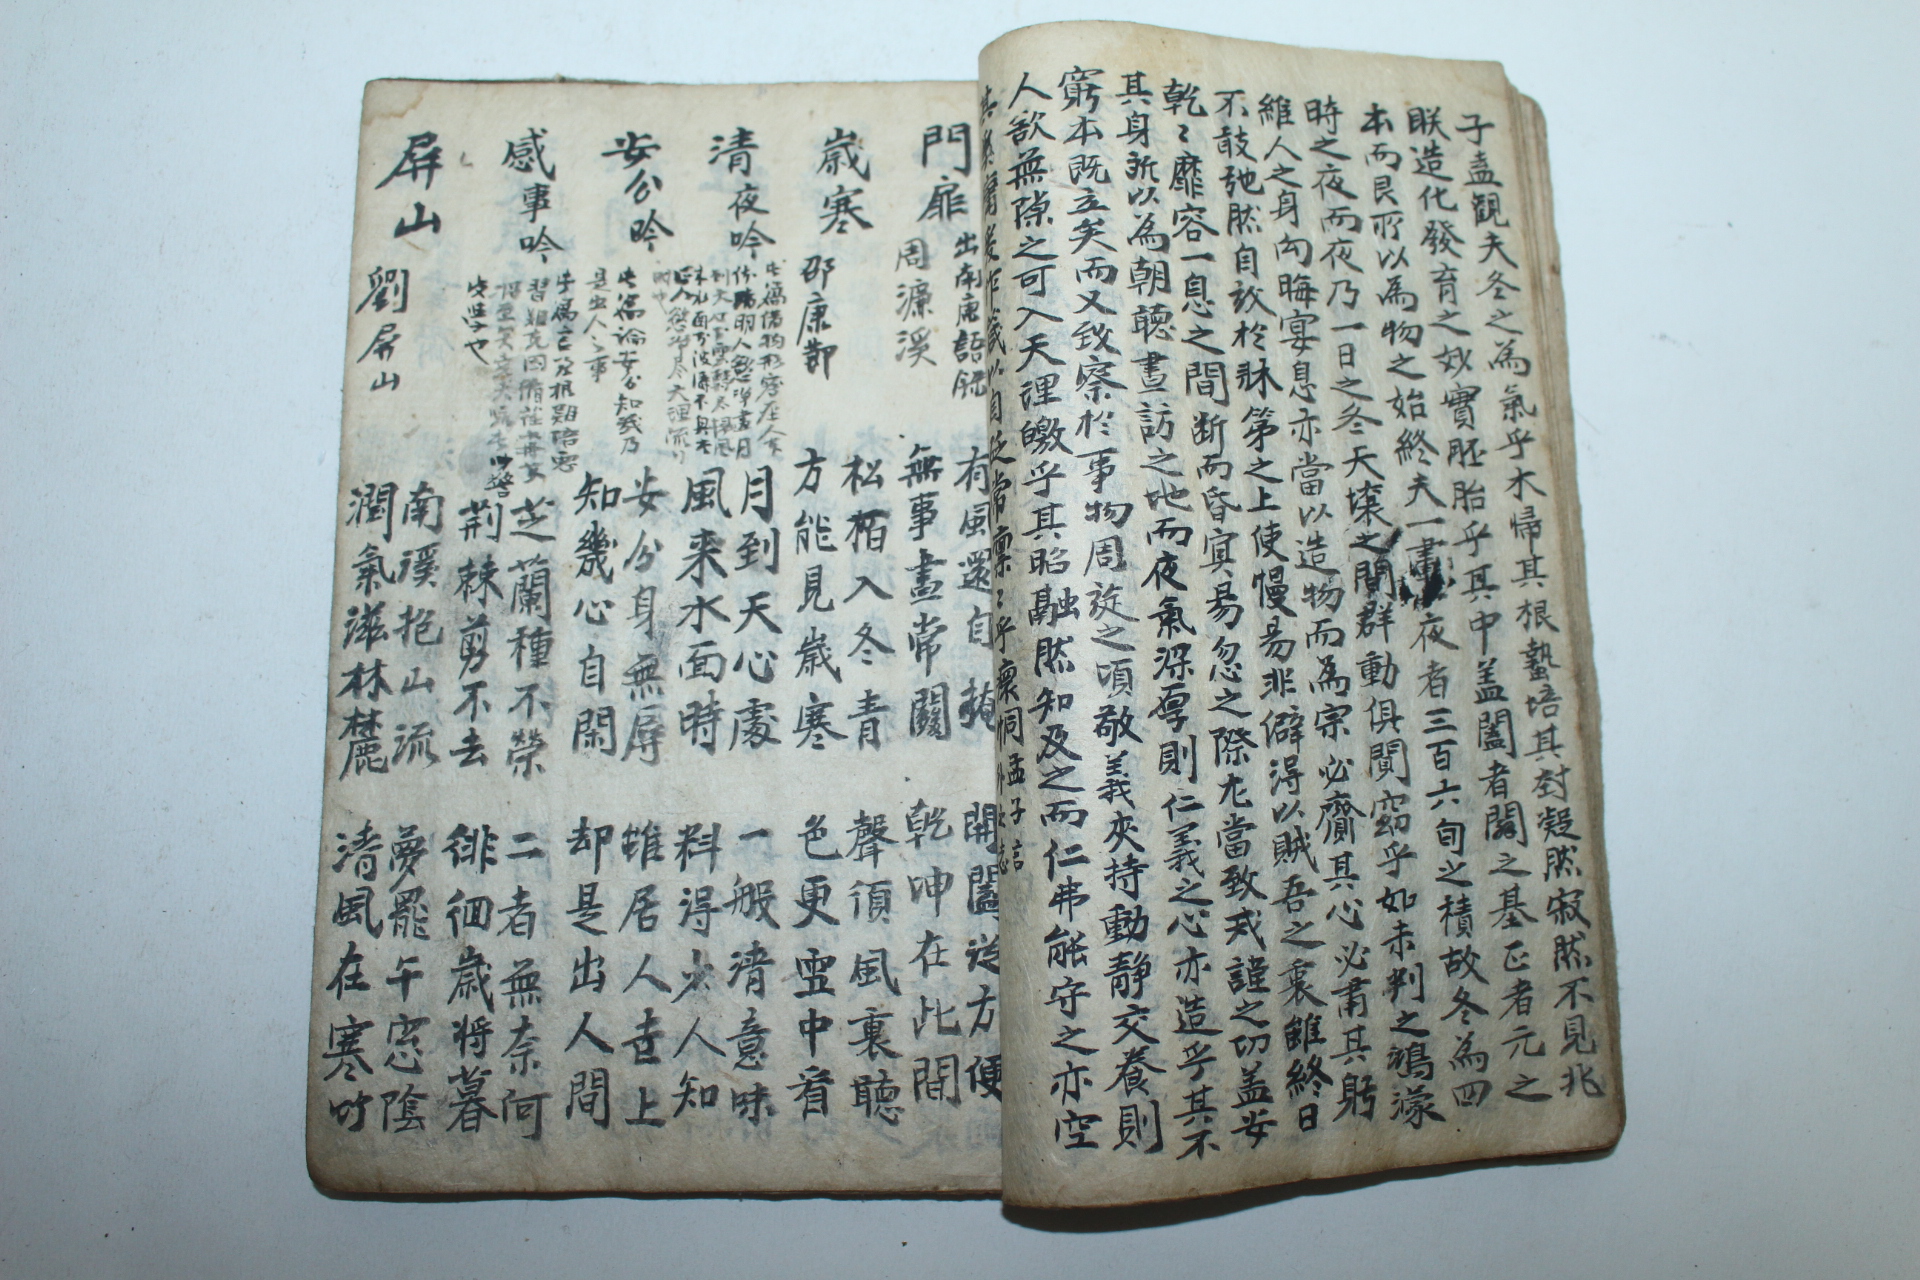 子盍觀夫冬之為氣乎木歸其根蟄培其封凝然寂然不見兆
眹造化發育之妙實胚胎乎其中盖闔者闢之基正者元之
本而艮所以為物之始終夫一晝夜者三百六旬之積故冬為四
時之夜而夜乃一日之冬天壤之間群動俱闃窈乎如未判之鴻濛
維人之身向晦宴息亦當以造物而為宗必齋其心必肅其躬
不敢弛然自放於牀第之上使慢易非僻得以賊吾之衷雖終日
乾〻靡容一息之間断而昏冥易忽之際尤當致戒謹之切盖安
其身所以為朝聴晝訪之地而夜氣深厚則仁義之心亦造乎其不
窮本既立矣而又致察於事物周旋之頃敬義夾持動静交養則
人欲無隙之可入天理皦乎其昭融然知及之而仁弗能守之亦空
常凛〻乎瘝恫 孟子言
門扉 出南康語錄 有風還自掩 開闔從方便
周濂溪 無事晝常關 乾坤在此間
歲寒 邵康節 松栢入冬青 聲須風裏聽
方能見歲寒 色更雪中看
清夜吟 月到天心處 一般清意味
風来水面時 料得少人知
安分吟 此篇論安分知幾乃 安分身無辱 雖居人世上
是出人之事 知幾心自閑 却是出人間
感事吟 芝蘭種不榮 二者無奈何
此學也 荊棘剪不去 徘徊歲将暮
屏山 劉屏山 南溪抱山流 夢罷午窓陰
潤氣滋林麓 清風在寒竹